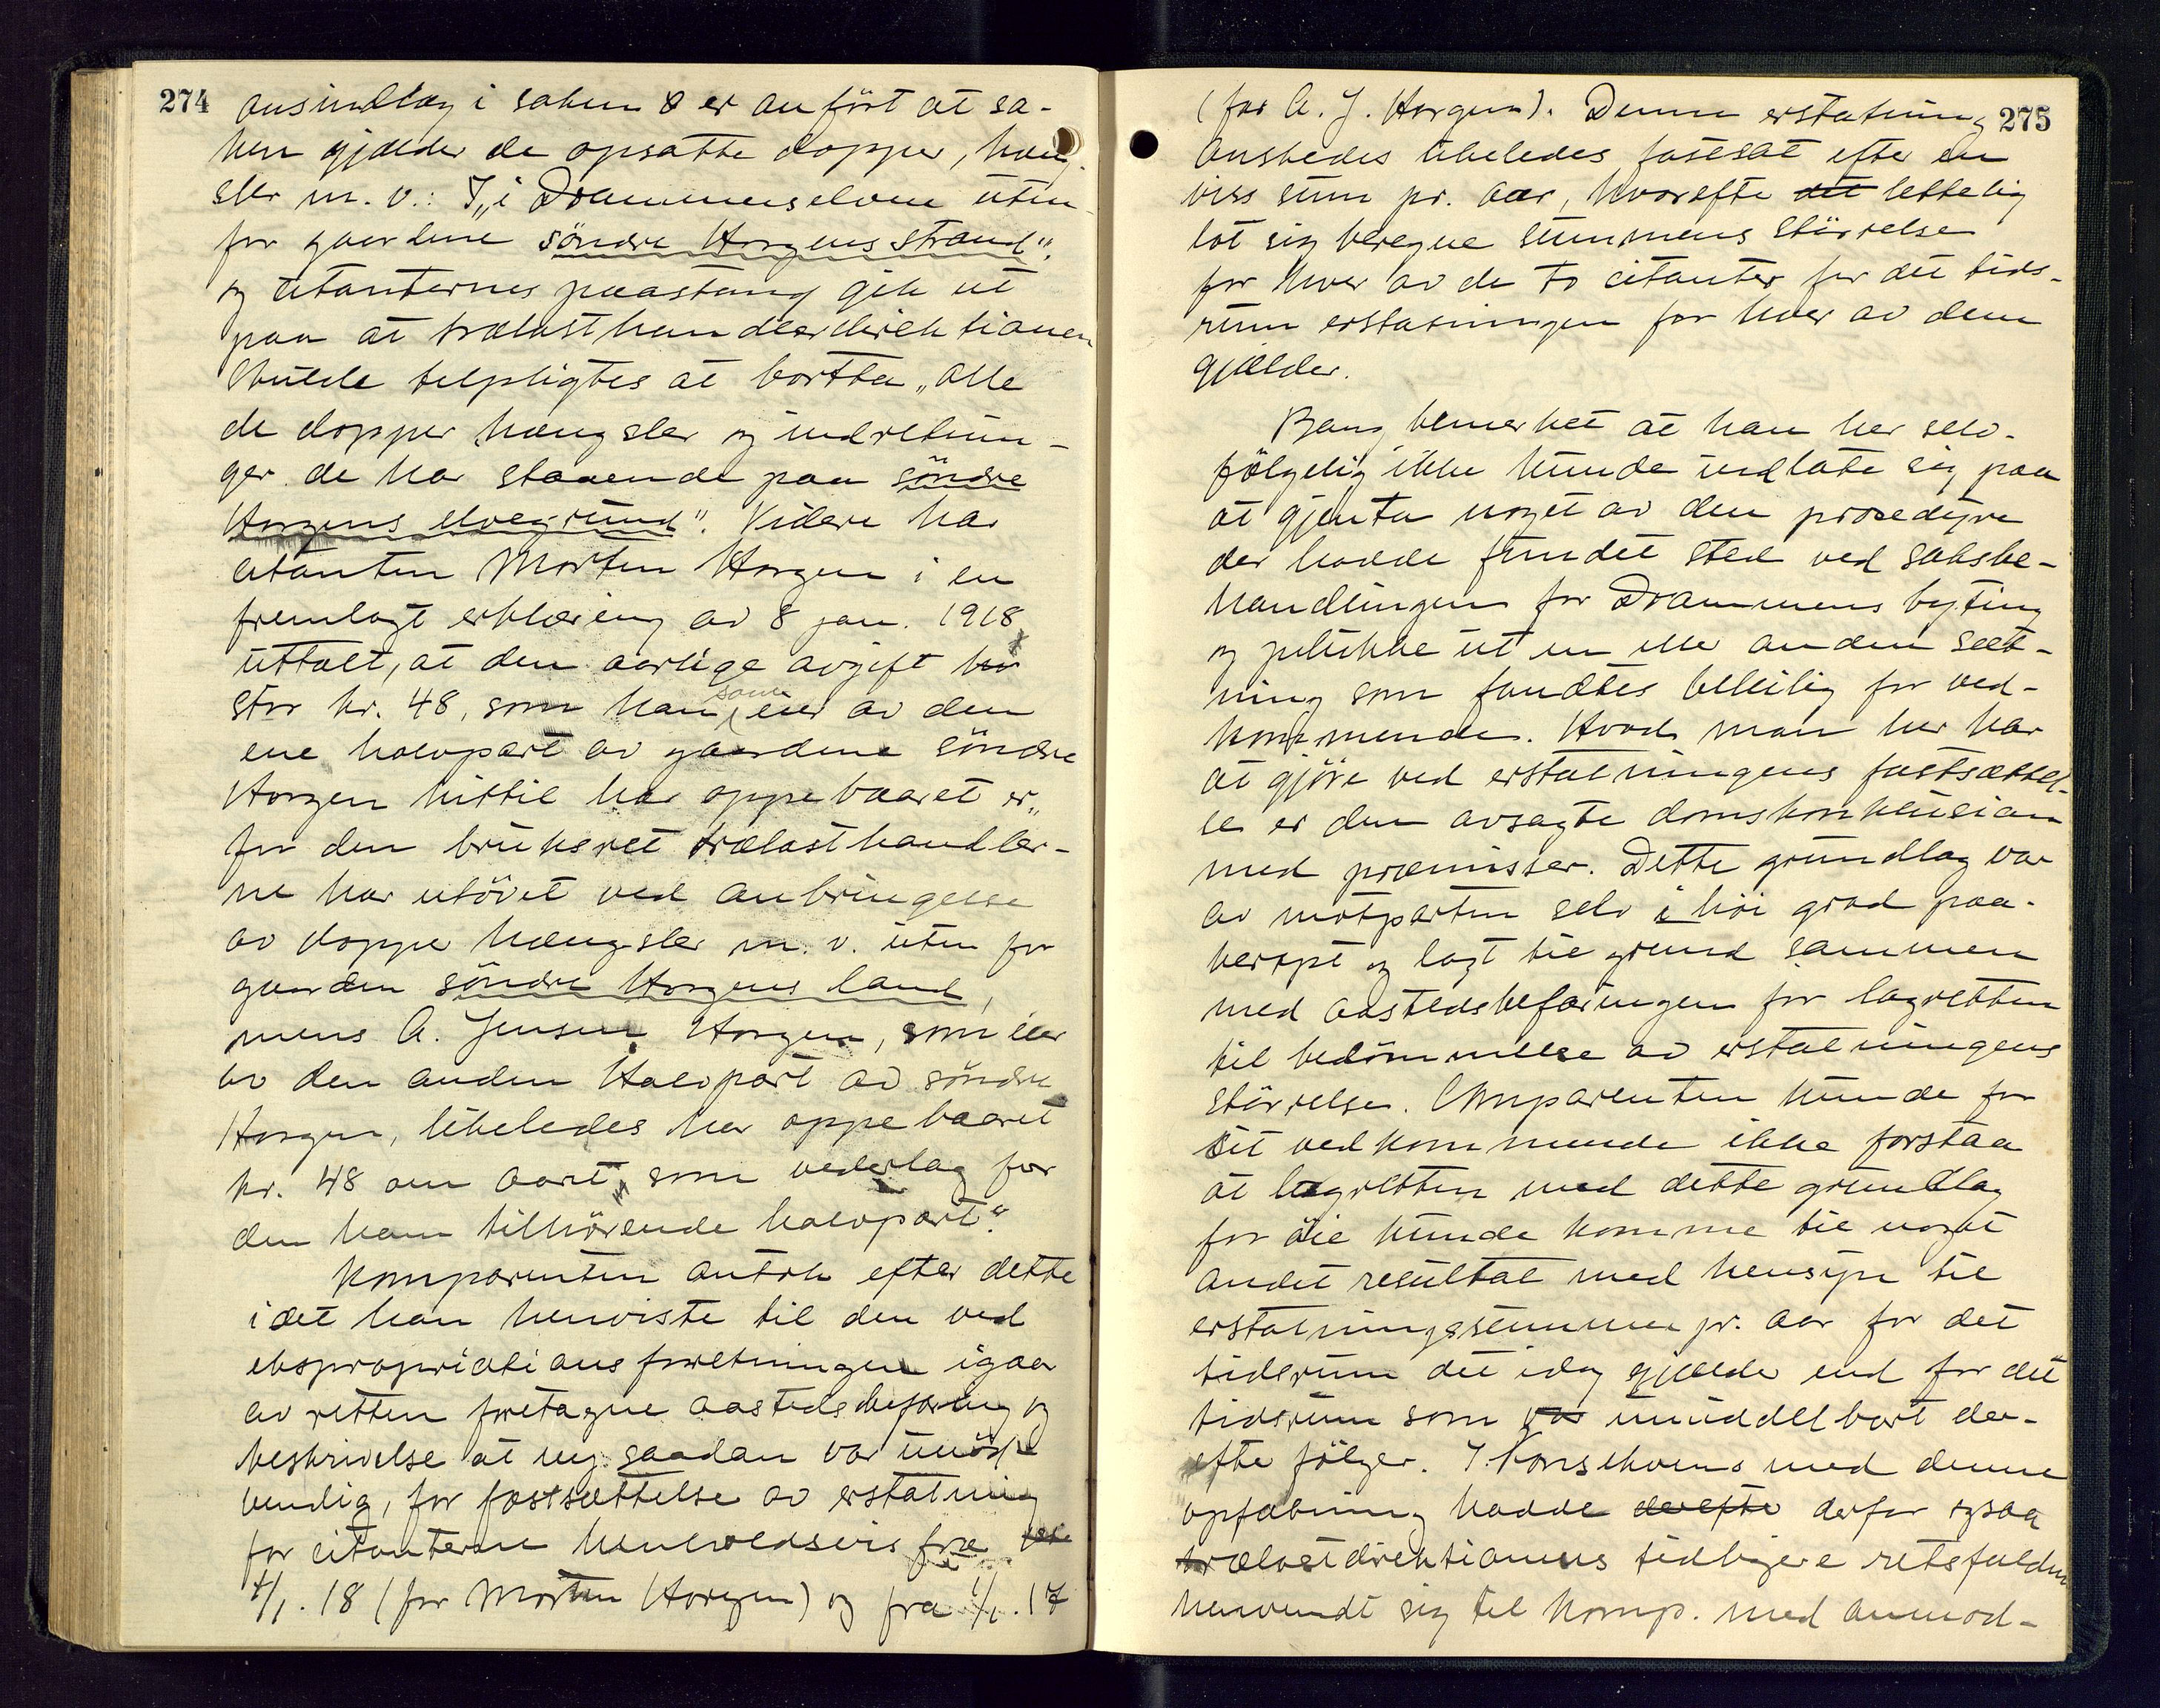 274
ansindlæg i saken er anført at sa-
ken gjælder de opsatte dopper, hæng-
sler m. v.: „i Drammenselven uten-
for gaardene söndre Horgens strand“.
og citanternes paastand gik ut
paa at trælasthandlerdirektionen
skulde tilpligtes at bortta „alle
de dopper hængsler og indretnin-
ger de har staaende paa söndre
Horgens elvegrund“. Videre har
citanten Morten Horgen i en
fremlagt erklæring av 8 jan. 1918
uttalt, at den aarlige avgift
stor kr. 48, som han som eier av den
ene halvpart av gaardene söndre
Horgen hittil har oppebaaret er „
for den bruksret trælasthandler-
ne har utövet ved anbringelse
av dopper hængsler m. v. uten for
gaarden söndre Horgens land,
mens A. Jensen Horgen, som eier
av den anden Halvpart av söndre
Horgen, likeledes har oppebaaret
kr. 48 om aaret, som vederlag for
den ham tilhörende halvpart“.
Komparenten antok efter dette
idet han henviste til den ved
ekspropriationsforretningen igaar
av retten foretagne aastedsbefaring og
beskrivelse at ny saadan var unød-
vendig, for fastsættelse av erstatning
for citanterne henholdsvis fra
1/1. 18 (for Morten Horgen) og fra 1/1. 17
275
(for A. J. Horgen). Denne erstatning
ønskedes likeledes fastsat efter en
viss sum pr. aar, hvorefter det lettelig
lot sig beregne summens störrelse
for hver av de to citanter for det tids-
rum erstatningen for hver av dem
gjælder.
Bang bemerket at han her selv-
fölgelig ikke kunde indlate sig paa
at gjenta noget av den prosedyre
der hadde fundet sted ved saksbe-
handlingen for Drammens byting
og plukke ut en eller anden sæt-
ning som fandtes beleilig for ved-
kommende. Hvad man her har
at gjöre ved erstatningens fastsættel-
se er den avsagte domskonklusion
med præmisser. Dette grundlag var
av motparten selv i höi grad paa-
beropt og lagt til grund sammen
med aastedsbefaringen for lagretten
til bedömmelse av erstatningens
störrelse. Komparenten kunde for
sit vedkommende ikke forstaa
at lagretten med dette grundlag
for öie kunde komme til noget
andet resultat med hensyn til
erstatningssummen pr. aar for det
tidsrum det idag gjælder end for det
tidsrum som var umiddelbart der-
efter fölger. I konsekvens med denne
opfatning hadde derefter derfor ogsaa
trælastdirektionens tidligere retsfuldm
henvendt sig til komp. med anmod-